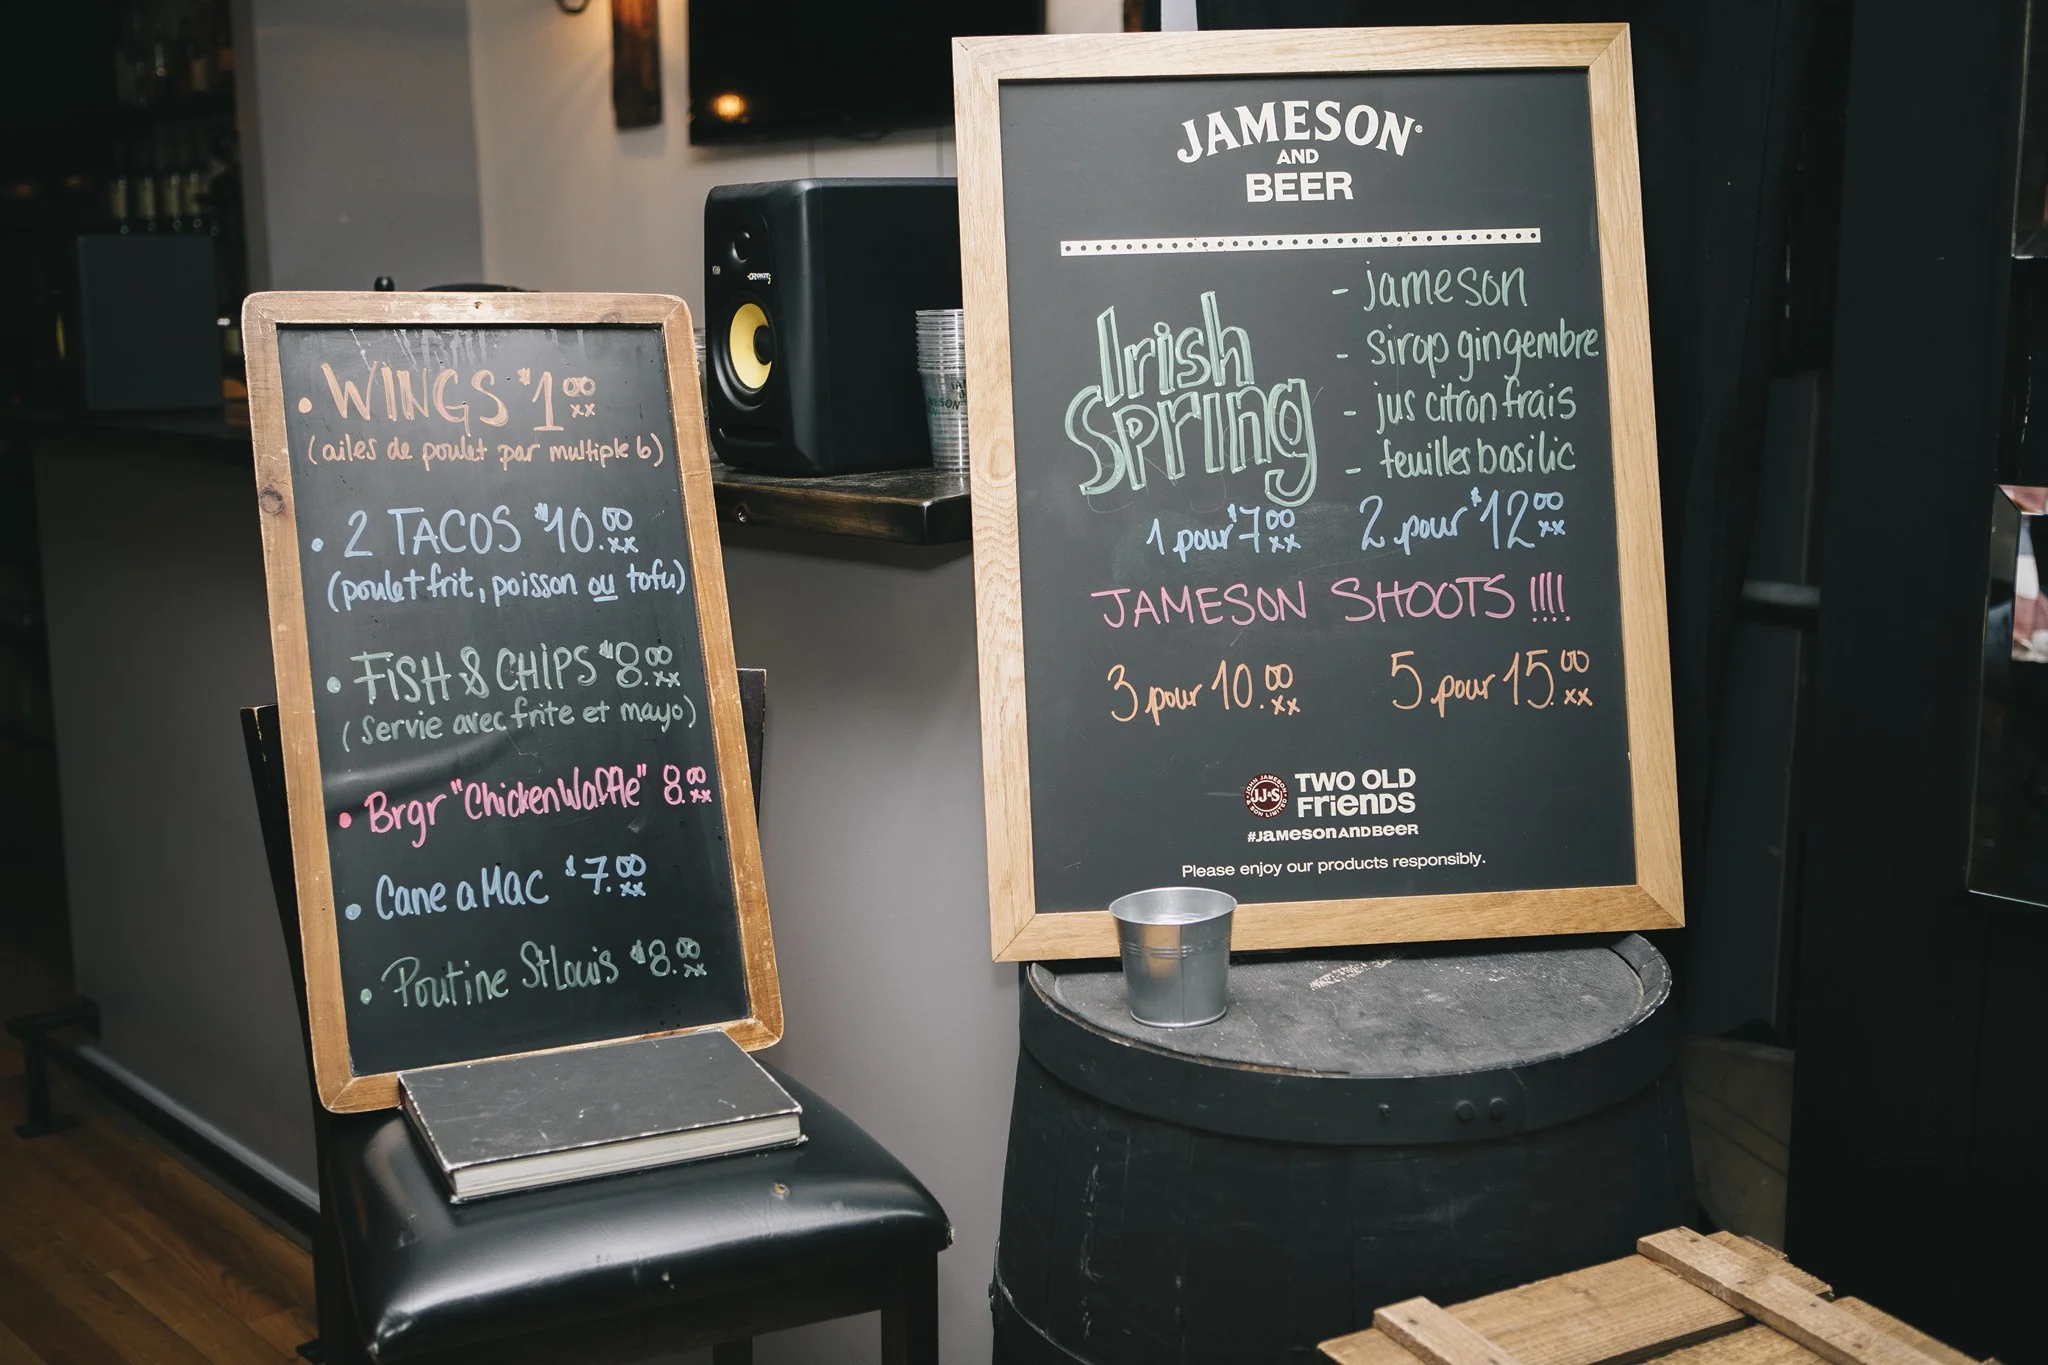 • WINGS $1.00
xx
(ailes de poulet par multiple 6)
• 2 TACOS $10.00
xx
(poulet frit, poisson ou tofu)
• FISH & CHIPS $8.00
xx
(servie avec frite et mayo)
• Brgr "ChickenWaffle" 8.00
xx
• Cane a Mac $7.00
xx
• Poutine St Louis $8.00
xx
ROKIT
JAMESON
JAMESON®
AND
BEER
Irish
Spring
- jameson
- sirop gingembre
- jus citron frais
- feuilles basilic
1 pour $7.00
xx
2 pour $12.00
xx
JAMESON SHOOTS !!!!
3 pour 10.00
xx
5 pour 15.00
xx
JOHN JAMESON
& SON LIMITED
JJ&S
TWO OLD
FrienDS
#JamesonanDBeer
Please enjoy our products responsibly.